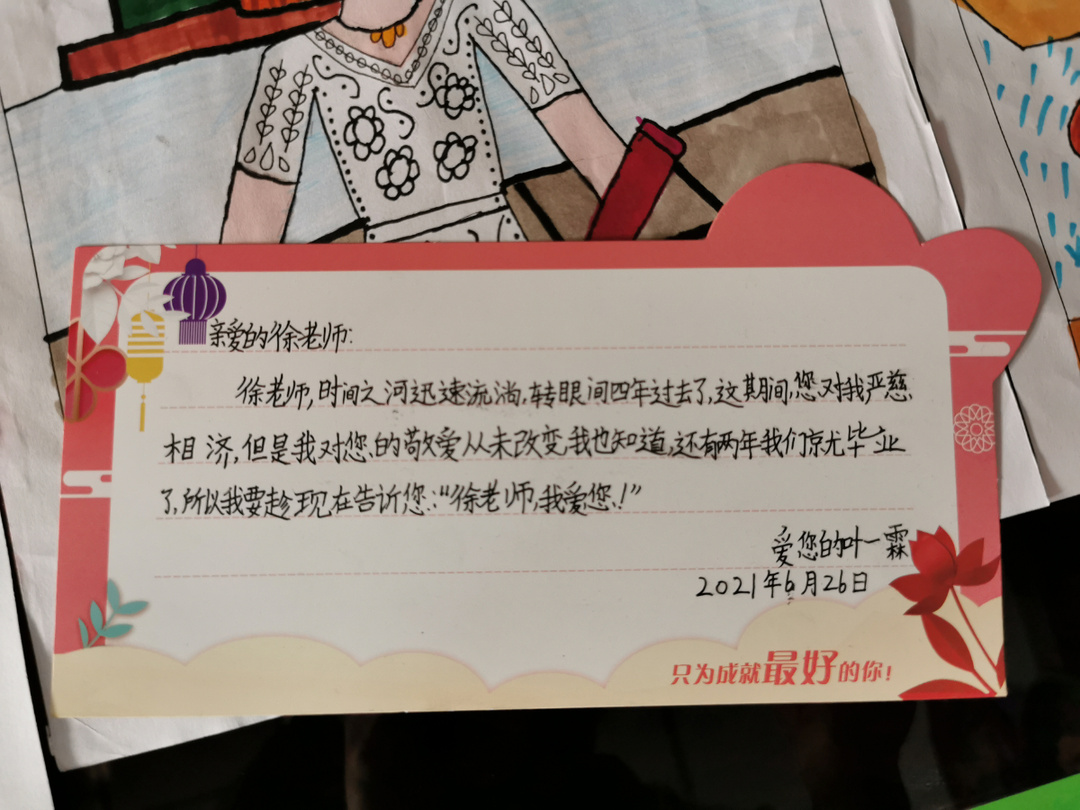 亲爱的徐老师:
徐老师,时间之河迅速流淌,转眼间四年过去了,这其间,您对我严慈
相济,但是我对您的敬爱从未改变,我也知道,还有两年我们就毕业
了,所以我要趁现在告诉您:“徐老师,我爱您!”
爱您的叶一霖
2021年6月26日
只为成就最好的你!